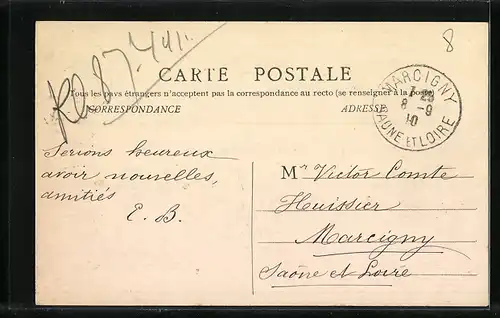 8
CARTE POSTALE
Tous les pays étrangers n'acceptent pas la correspondance au recto (se renseigner à la poste)
CORRESPONDANCE
ADRESSE
MARCIGNY
7 25
8 -9
10
SAONE ET LOIRE
Serions heureux
avoir nouvelles,
amitiés
E. B.
Mr Victor Comte
Huissier
Marcigny
Saône et Loire